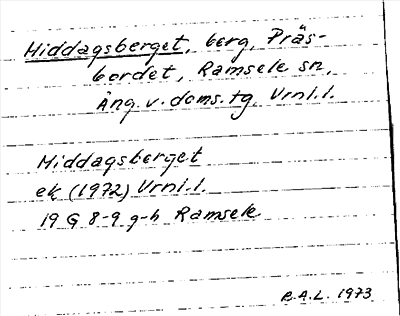 Middagsberget, berg, Präs-
bordet, Ramsele sn,
Ång. v. doms. tg, Vrnl.l.
Middagsberget
ek (1972) Vrnl.l.
19 G 8-9 g-h Ramsele
B.A.L. 1973